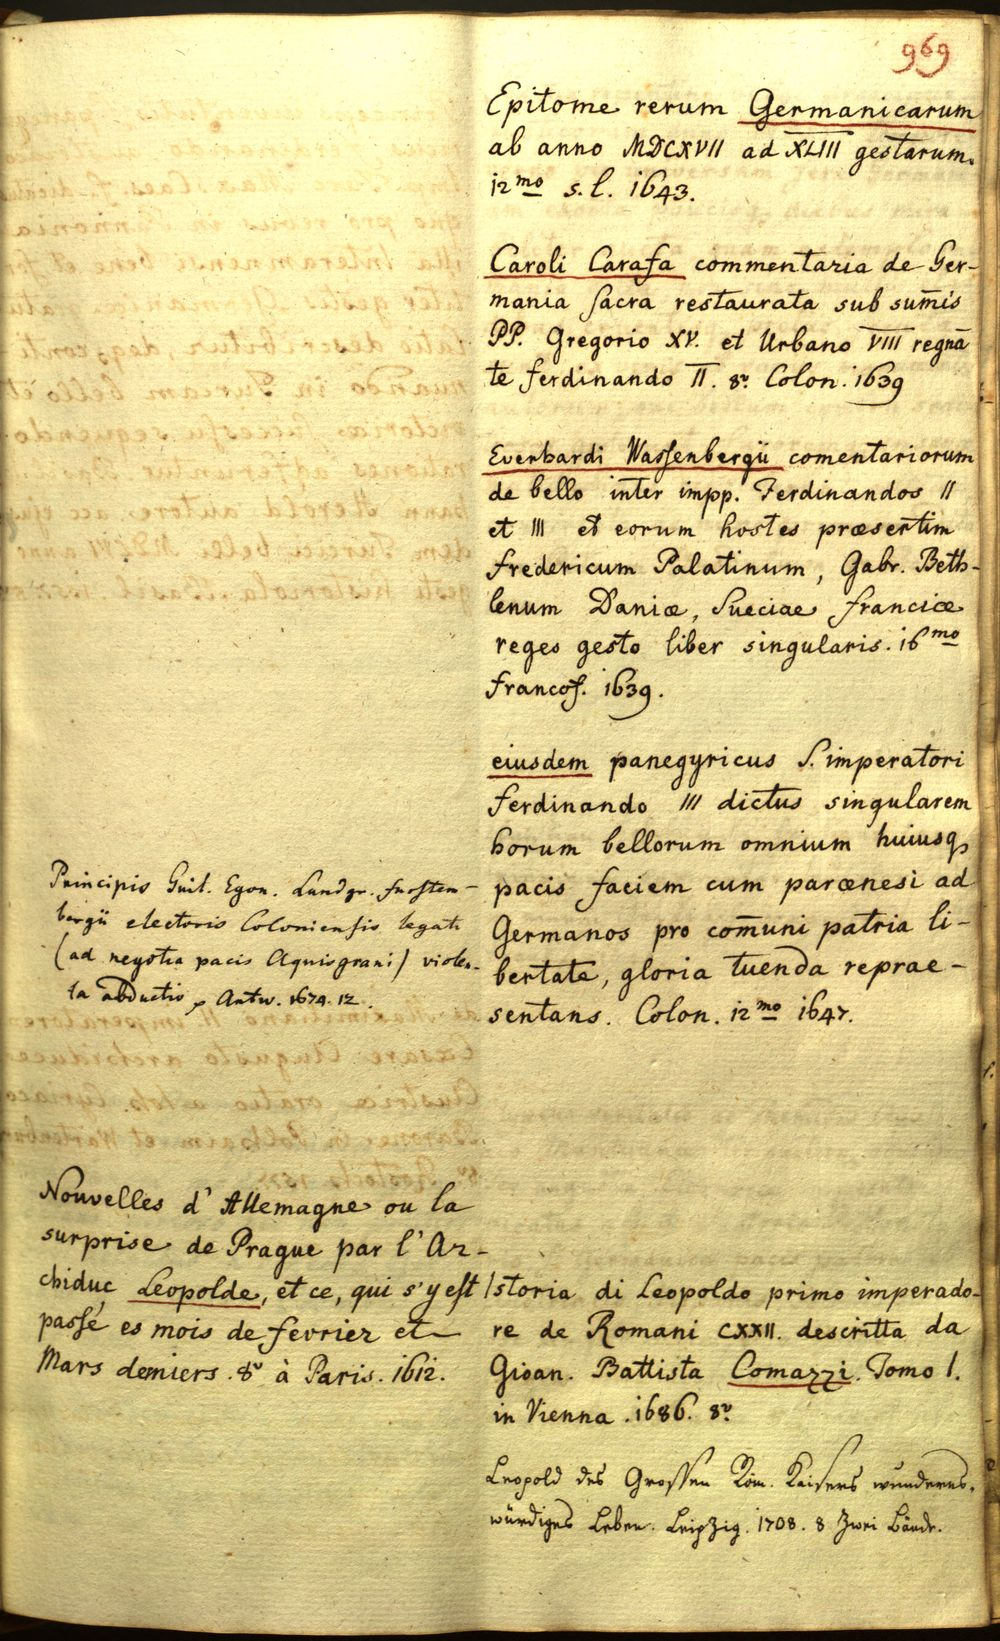 969
Epitome rerum Germanicarum
ab anno MDCXVII ad XLIII gestarum.
12mo s.l. 1643.
Caroli Carafa commentaria de Ger-
mania sacra restaurata sub sum̄is
PP. Gregorio XV. et Urbano VIII regnā
te ferdinando II. 8º Colon. 1639
Everhardi Wassenbergii comentariorum
de bello inter impp. Ferdinandos II
et III et eorum hostes præsertim
fredericum Palatinum, Gabr. Beth-
lenum Daniæ, Sueciae franciæ
reges gesto liber singularis. 16mo
francof. 1639.
eiusdem panegyricus S. imperatori
ferdinando III dictus singularem
horum bellorum omnium huiusq,
pacis faciem cum parænesi ad
Germanos pro com̄uni patria li-
bertate, gloria tuenda reprae-
sentans. Colon. 12mo 1647.
Principis Guil. Egon. Landgr. furstem-
bergii electoris Coloniensis legati
(ad negotia pacis Aquisgrani) violen-
ta abductio Antw. 1674. 12.
Nouvelles d'Allemagne ou la
surprise de Prague par l'Ar-
chiduc Leopolde, et ce, qui s'y est
passé es mois de fevrier et
Mars derniers. 8º à Paris. 1612.
Istoria di Leopoldo primo imperado-
re de Romani CXXII. descritta da
Gioan. Battista Comazzi. Tomo I.
in Vienna. 1686. 8º
Leopold des Grossen Röm. Kaisers wunderns-
würdiges Leben. Leipzig. 1708. 8 Zwei Bände.